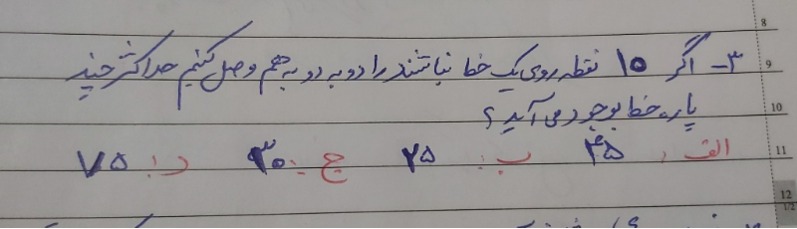 8
۳- اگر ۱۵ نقطه روی یک خط نباشند را دو به دو به هم وصل کنیم حداکثر چند
9
پاره خط بوجود می آید ؟
10
الف : ۴۵ ب : ۲۵ ج : ۳۰ د : ۷۵
11
12
1/2